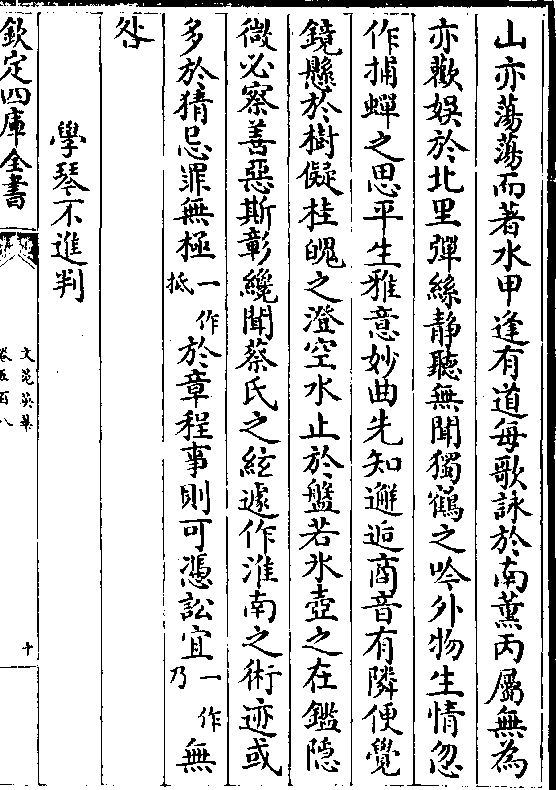 山亦蕩蕩而著水甲逢有道每歌詠於南薰丙屬無為
亦歡娛於北里彈絲静聽無聞獨鶴之吟外物生情忽
作捕蟬之思平生雅意妙曲先知邂逅商音有隣便覺
鏡懸於樹儗桂魄之澄空水止於盤若氷壺之在鑑隠
微必察善惡斯彰纔聞蔡氏之絃遽作淮南之術迹或
多於猜忌罪無極一作抵於章程事則可憑訟宜一作乃無
咎
學琴不進判
欽定四庫全書
文苑英華
卷五百八
十